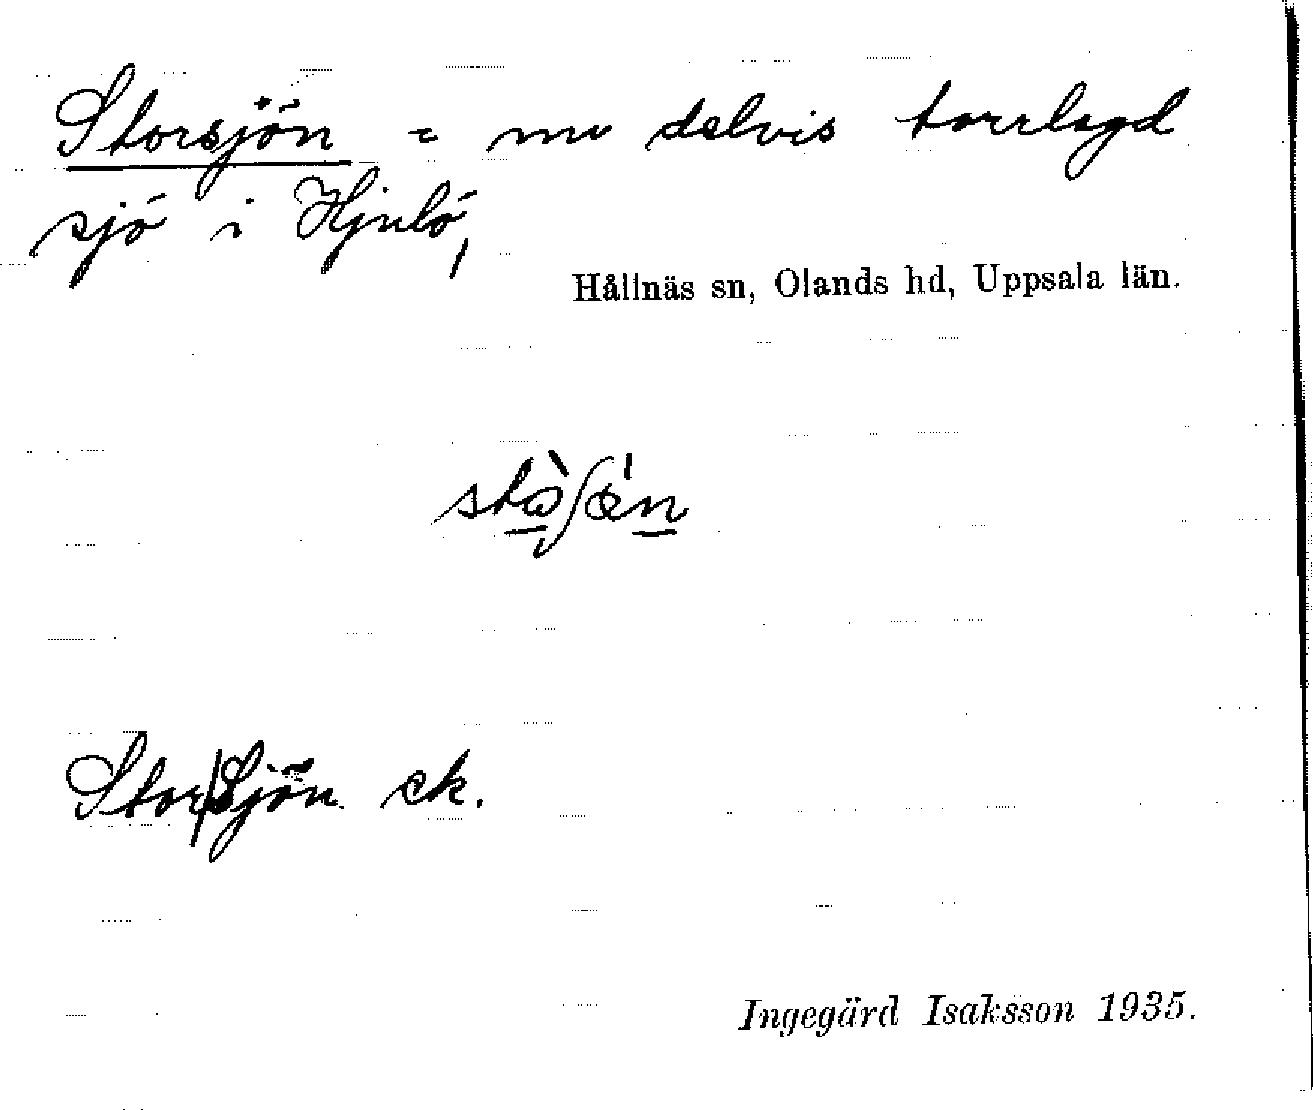 Storsjön = nu delvis torrlagd
sjö i Hjulö,
Hållnäs sn, Olands hd, Uppsala län.
Stor|Sjön ek.
Ingegärd Isaksson 1935.